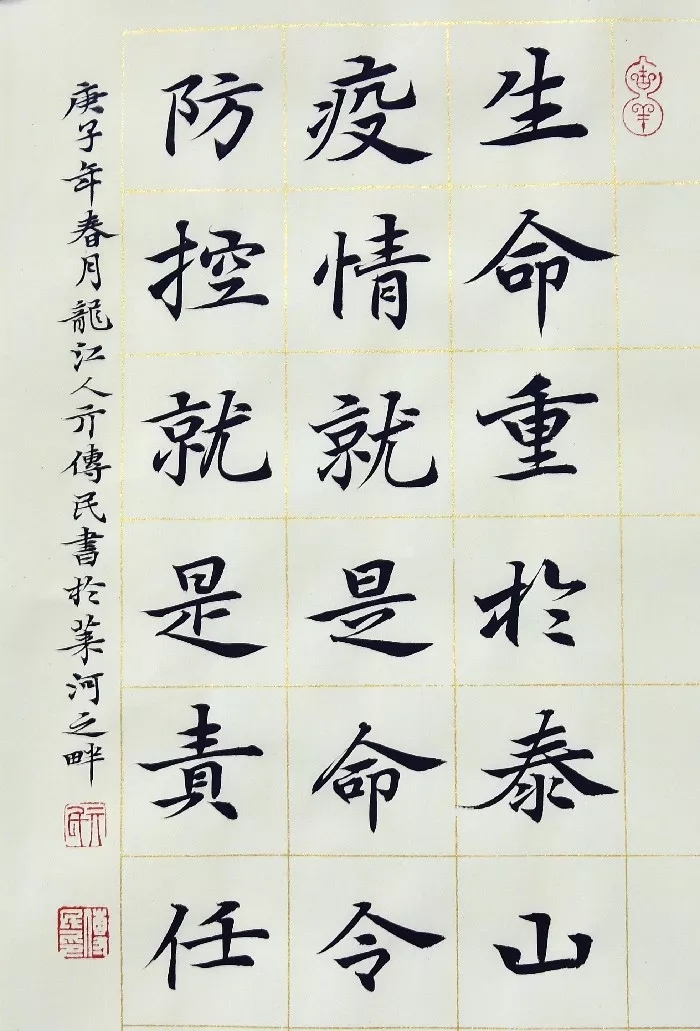 生命重於泰山
疫情就是命令
防控就是責任
庚子年春月龍江人亓傳民書於萊河之畔